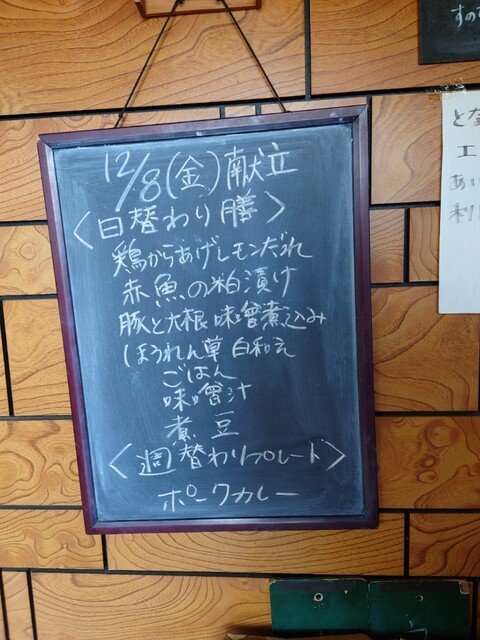 12/8(金)献立
〈日替わり膳〉
鶏からあげレモンだれ
赤魚の粕漬け
豚と大根味噌煮込み
ほうれん草白和え
ごはん
味噌汁
煮豆
〈週替わりプレート〉
ポークカレー
すの
とな
工
あい
利